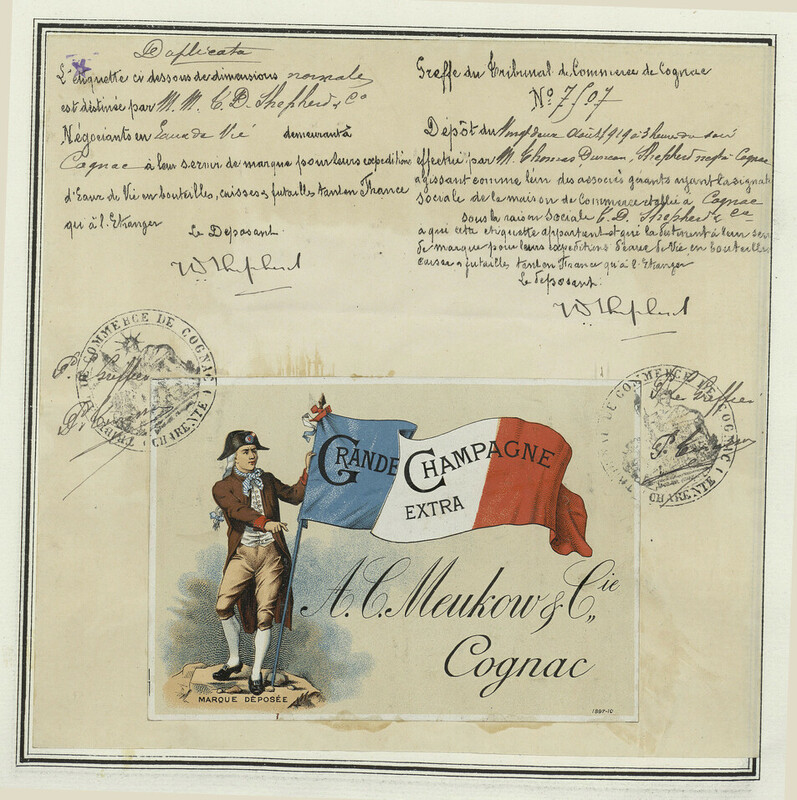 Duplicata
L'étiquette ci dessous de dimensions normales
est destinée par M.M. C. D. Shepherd & Co
Négociants en Eaux de Vie demeurant à
Cognac à leur servir de marque pour leurs expéditions
d'Eaux de Vie en bouteilles, caisses & futailles tant en France
qu'à l'Etranger
Le Déposant
Greffe du Tribunal de Commerce de Cognac
No 7507
Dépôt du Vingt deux Août 1919 à 3 heures du soir
effectué par M. Thomas Duncan Shepherd negt à Cognac
agissant comme l'un des associés gérants ayant la signat
sociale de la maison de Commerce établie à Cognac
sous la raison sociale T. D. Shepherd & Co
à qui cette étiquette appartient et qui la destinent à leur ser
de marque pour leurs expéditions d'eaux de Vie en bouteilles
caisses & futailles tant en France qu'à l'Etranger
Le déposant
TDShepherd
TDShepherd
TRIBUNAL DE COMMERCE DE COGNAC
(CHARENTE)
Pr Le Greffier
TRIBUNAL DE COMMERCE DE COGNAC
(CHARENTE)
Pr Le Greffier
GRANDE CHAMPAGNE
EXTRA
A. C. Meukow & Cie
Cognac
MARQUE DÉPOSÉE
1897-10